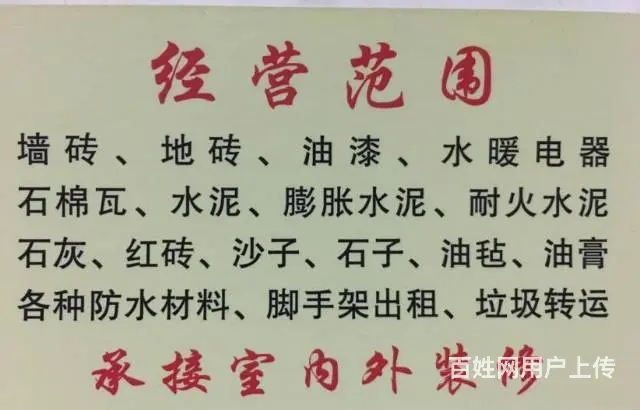 经营范围
墙砖、地砖、油漆、水暖电器
石棉瓦、水泥、膨胀水泥、耐火水泥
石灰、红砖、沙子、石子、油毡、油膏
各种防水材料、脚手架出租、垃圾转运
承接室内外装修
百姓网用户上传